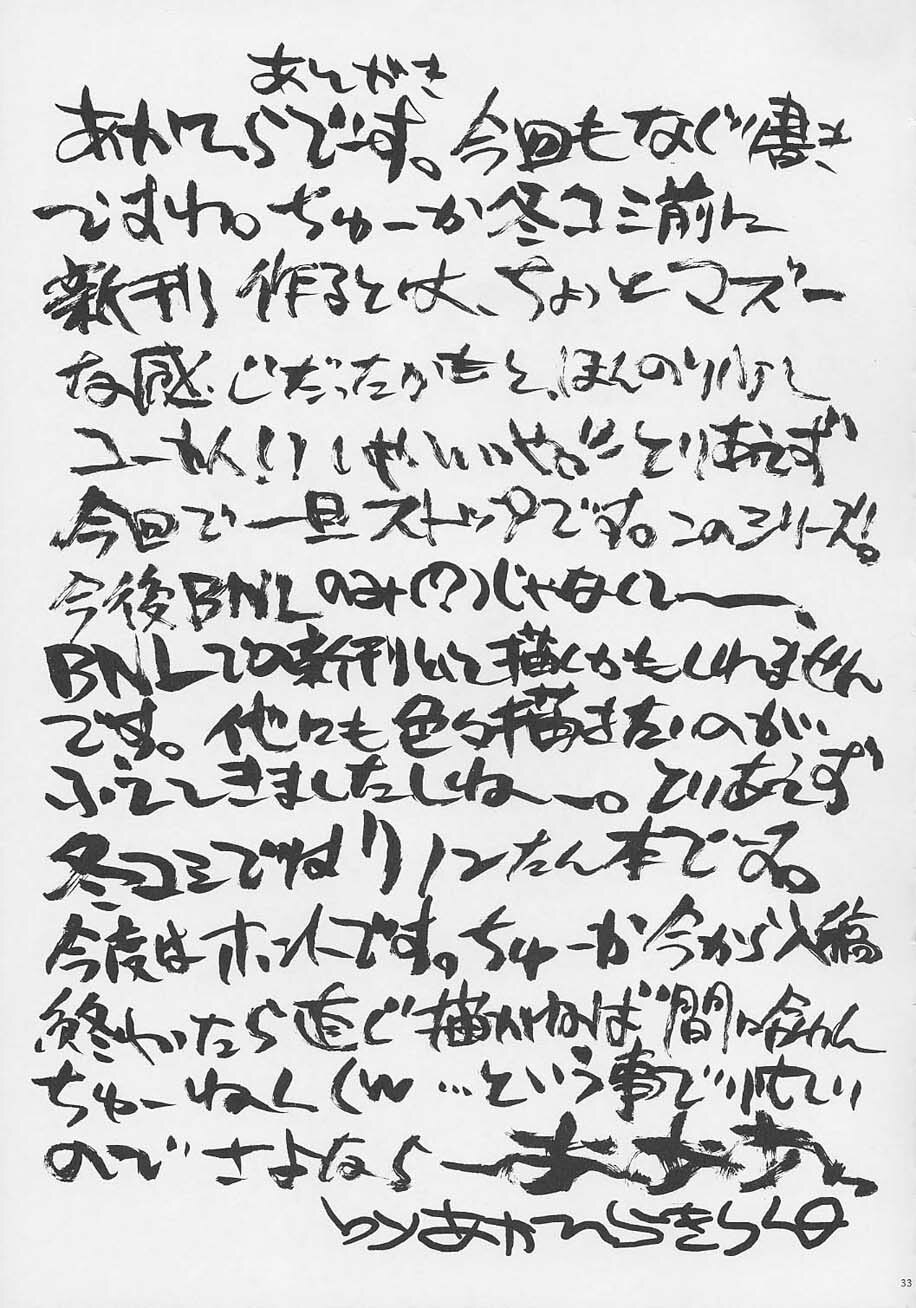 あとがき
あかてぃらでーす。今回もなぐり書き
ですね。ちゅーか冬コミ前に
新刊作るとは、ちょっとマズー
な感じだったりもし、ほんのり
とりあえず
今回で一旦ストップです。このシリーズ!。
今後BNLのみ(?)じゃなくてー、
BNLでの新刊として描くかもしれません
です。他にも色々描きたいのが
ふえてきましたしねー。とりあえず
冬コミではリノンたん本でーす。
今度はホントです。ちゅーか今から入稿
終わったら直ぐ描かねば間に合わん
ちゅーねん(w …という事で忙しい
のでさよならー
33